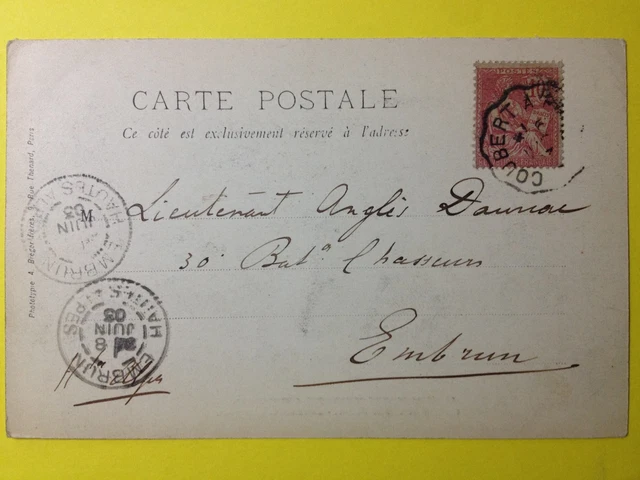 CARTE POSTALE
Ce côté est exclusivement réservé à l'adresse
POSTES
COUBERT A
M Lieutenant Anglès
30e Bat. Chasseurs
Embrun
EMBRUN HAUTES
JUIN
03
EMBRUN HAUTES-ALPES
8
JUIN
03
Phototypie A. Rue Thénard, Paris